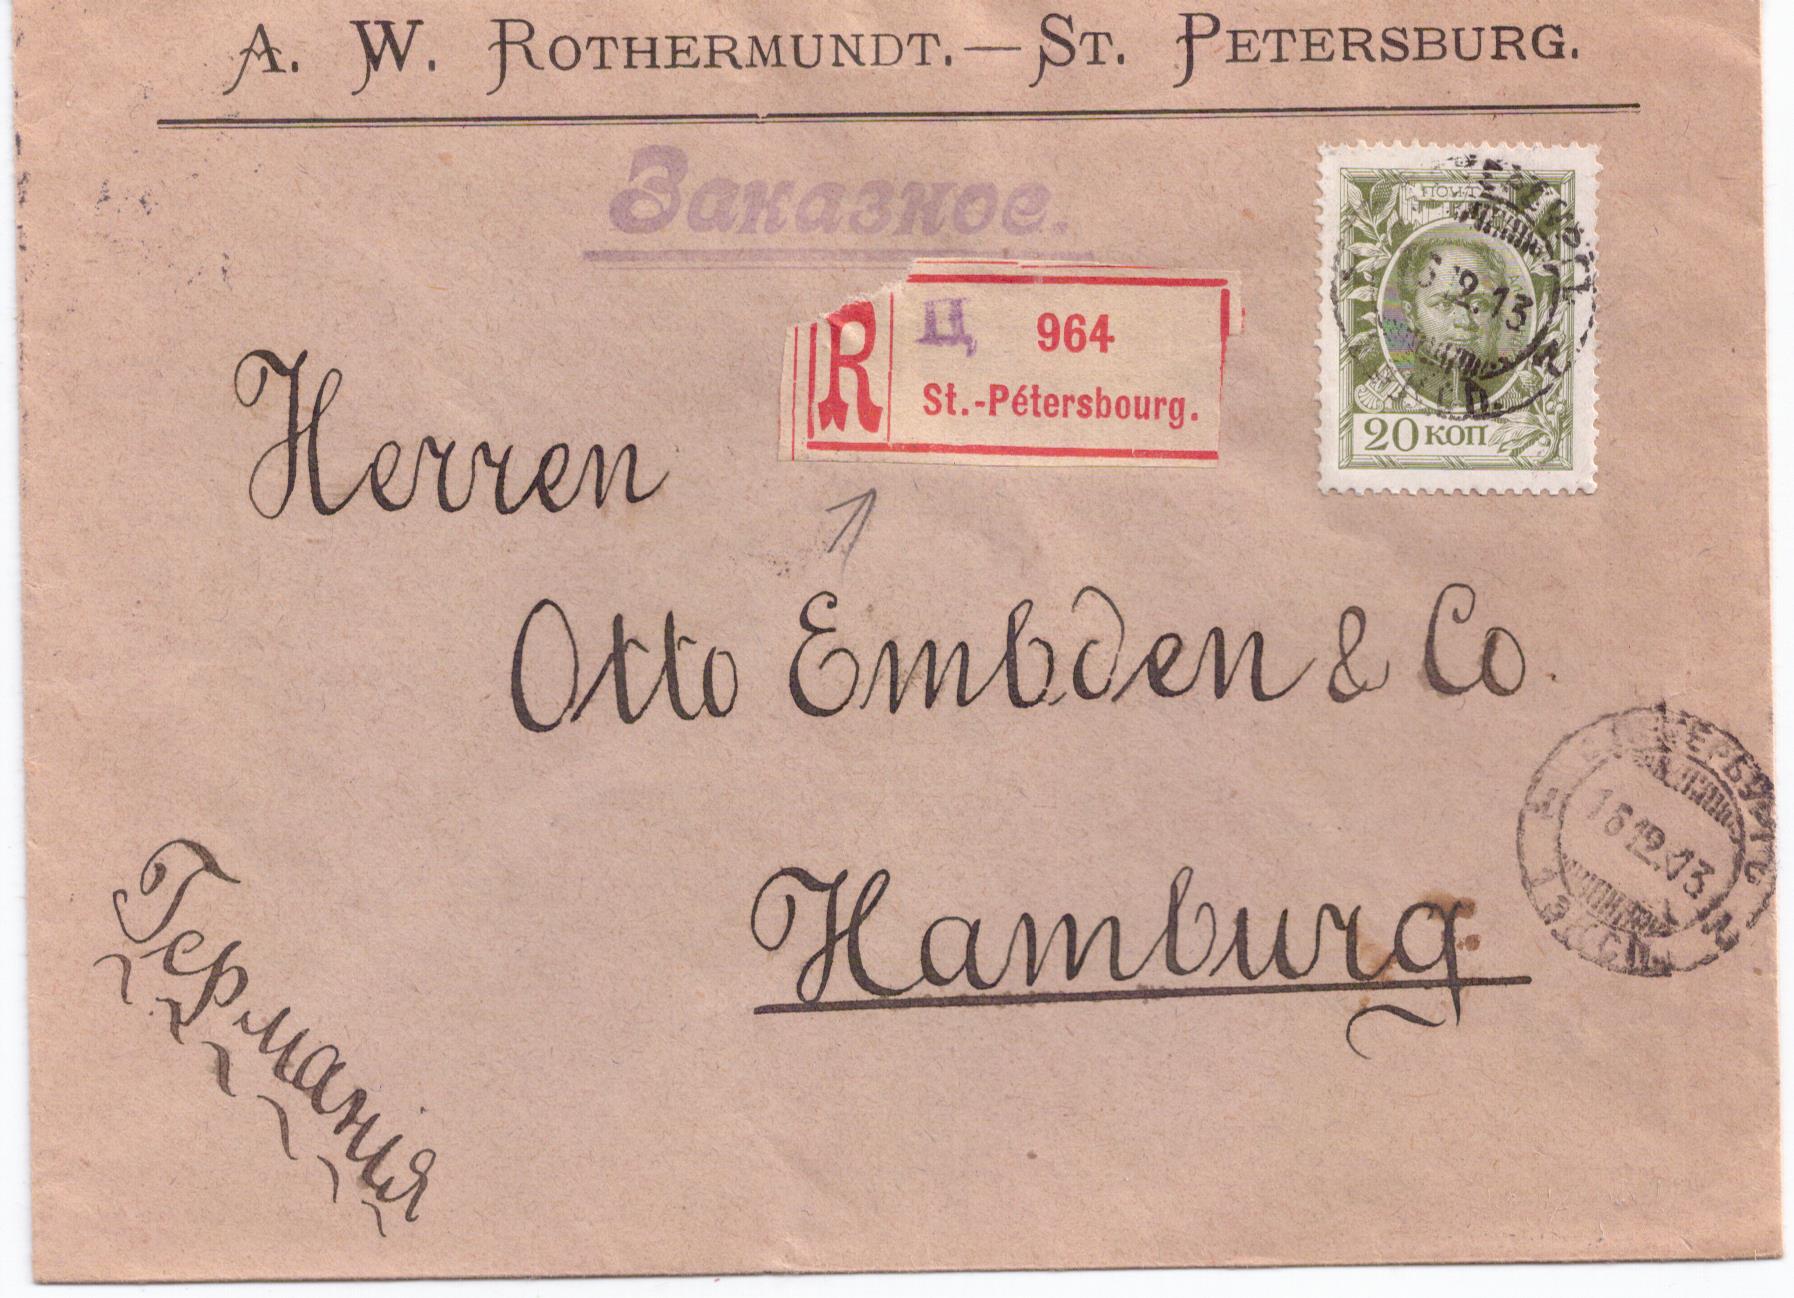 A. W. ROTHERMUNDT.—ST. PETERSBURG.
Заказное.
R
Ц 964
St.-Pétersbourg.
2.13
20 КОП
Herren
Otto Embden & Co.
Hamburg
16 12.13
1 ЭКСП.
Германія